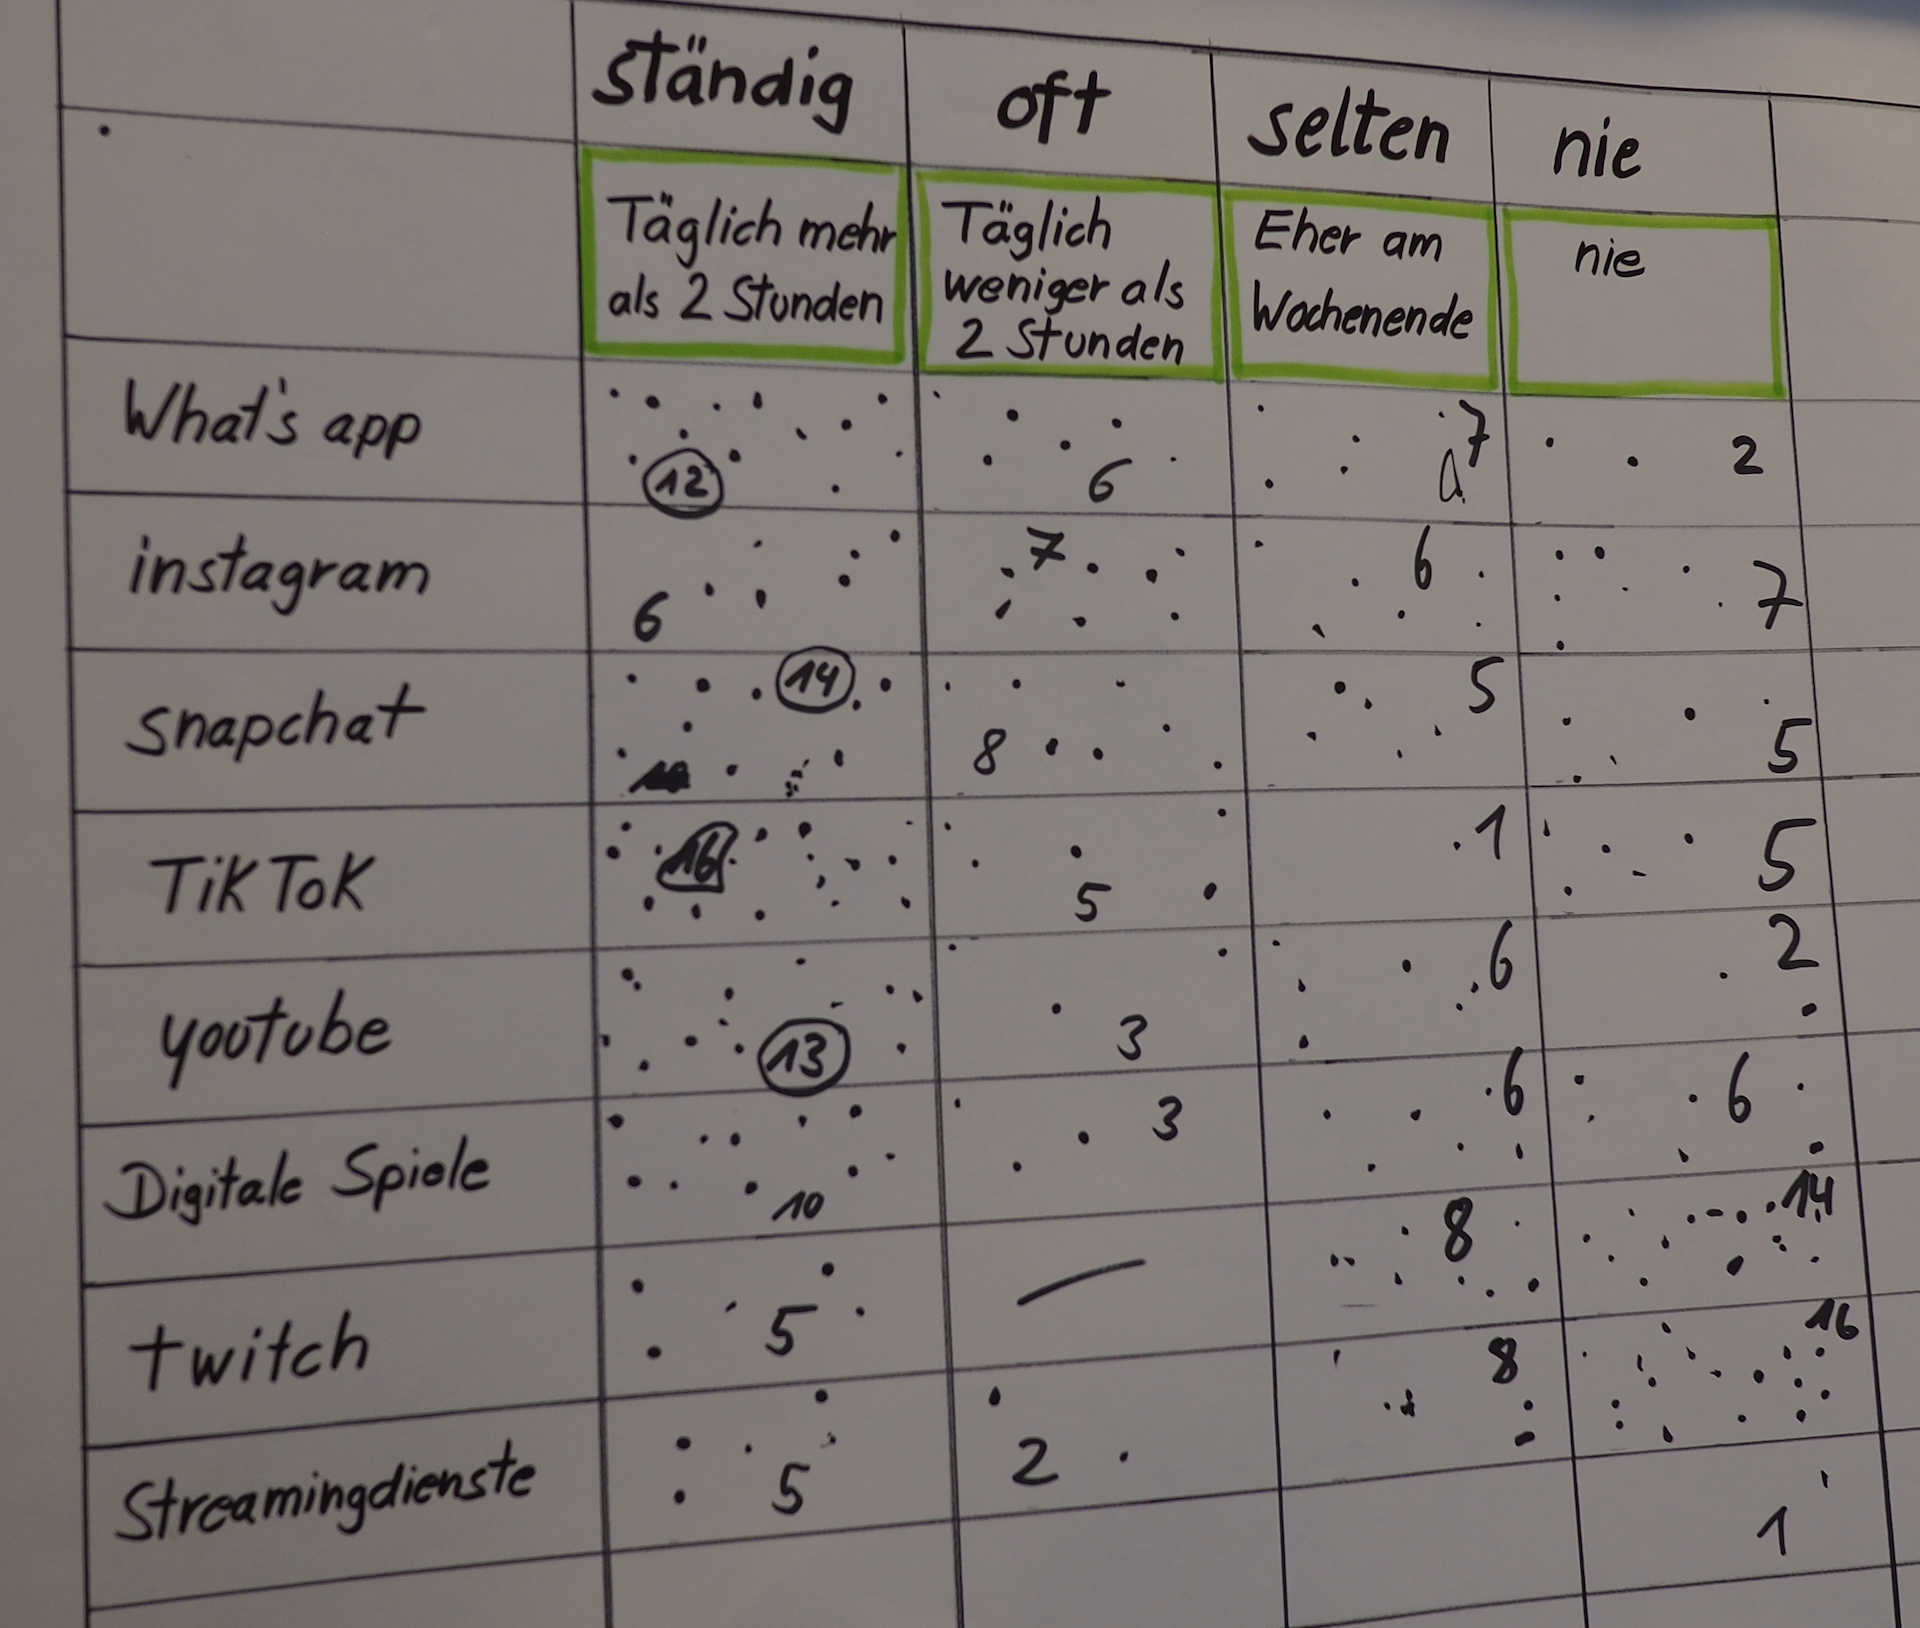 ständig oft selten nie
Täglich mehr
als 2 Stunden
Täglich
weniger als
2 Stunden
Eher am
Wochenende
nie
What's app 12 6 7 2
instagram 6 7 6 7
snapchat 14 8 5 5
TikTok 16 5 1 5
youtube 13 3 6 2
Digitale Spiele 10 3 6 6
twitch 5 — 8 14
Streamingdienste 5 2 8 16
1